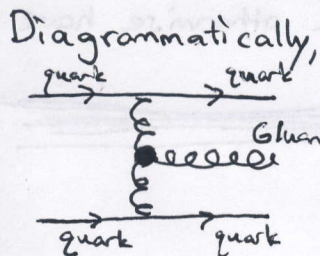 Diagrammatically,
quark quark
Gluon
quark quark